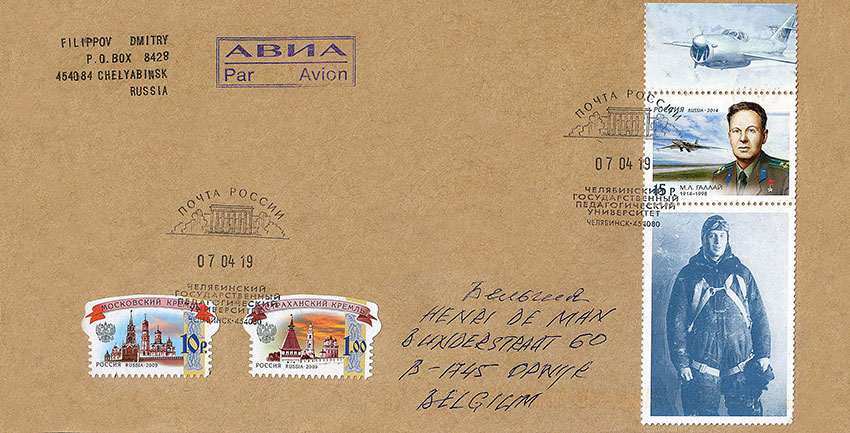 FILIPPOV DMITRY
P.O.BOX 8429
454084 CHELYABINSK
RUSSIA
АВИА
Par Avion
ПОЧТА РОССИИ
07 04 19
ЧЕЛЯБИНСКИЙ
ГОСУДАРСТВЕННЫЙ
ПЕДАГОГИЧЕСКИЙ
УНИВЕРСИТЕТ
ЧЕЛЯБИНСК•454080
РОССИЯ RUSSIA•2014
15 р.
М.Л. ГАЛЛАЙ
1914–1998
ПОЧТА РОССИИ
07 04 19
ЧЕЛЯБИНСКИЙ
ГОСУДАРСТВЕННЫЙ
ПЕДАГОГИЧЕСКИЙ
УНИВЕРСИТЕТ
МОСКОВСКИЙ
10р.
РОССИЯ RUSSIA•2009
КРЕМЛЬ
1.00
РОССИЯ RUSSIA•2009
Бельгия
HENRI DE MAN
60
B-1745
BELGIUM